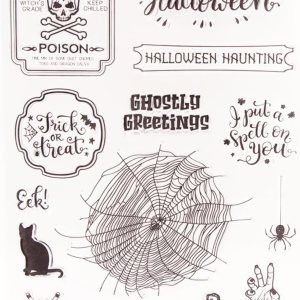 Halloween
WITCH'S GRADE
KEEP CHILLED
POISON
HALLOWEEN HAUNTING
GHOSTLY
Greetings
Trick
OR
treat
I put a
spell on
you
Eek!